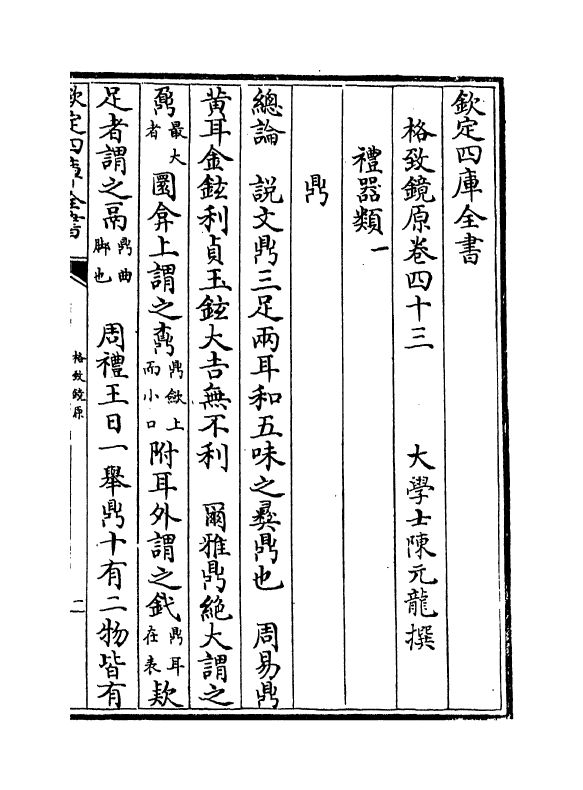 欽定四庫全書
格致鏡原卷四十三　　大學士陳元龍撰
禮器類一
鼎
總論　説文鼎三足兩耳和五味之彛鼎也　周易鼎
黄耳金鉉利貞玉鉉大吉無不利　爾雅鼎絶大謂之
鼐最大者圜弇上謂之鼒鼎斂上而小口附耳外謂之釴鼎耳在表款
足者謂之鬲鼎曲脚也　周禮王日一舉鼎十有二物皆有
欽定四庫全書
格致鏡原